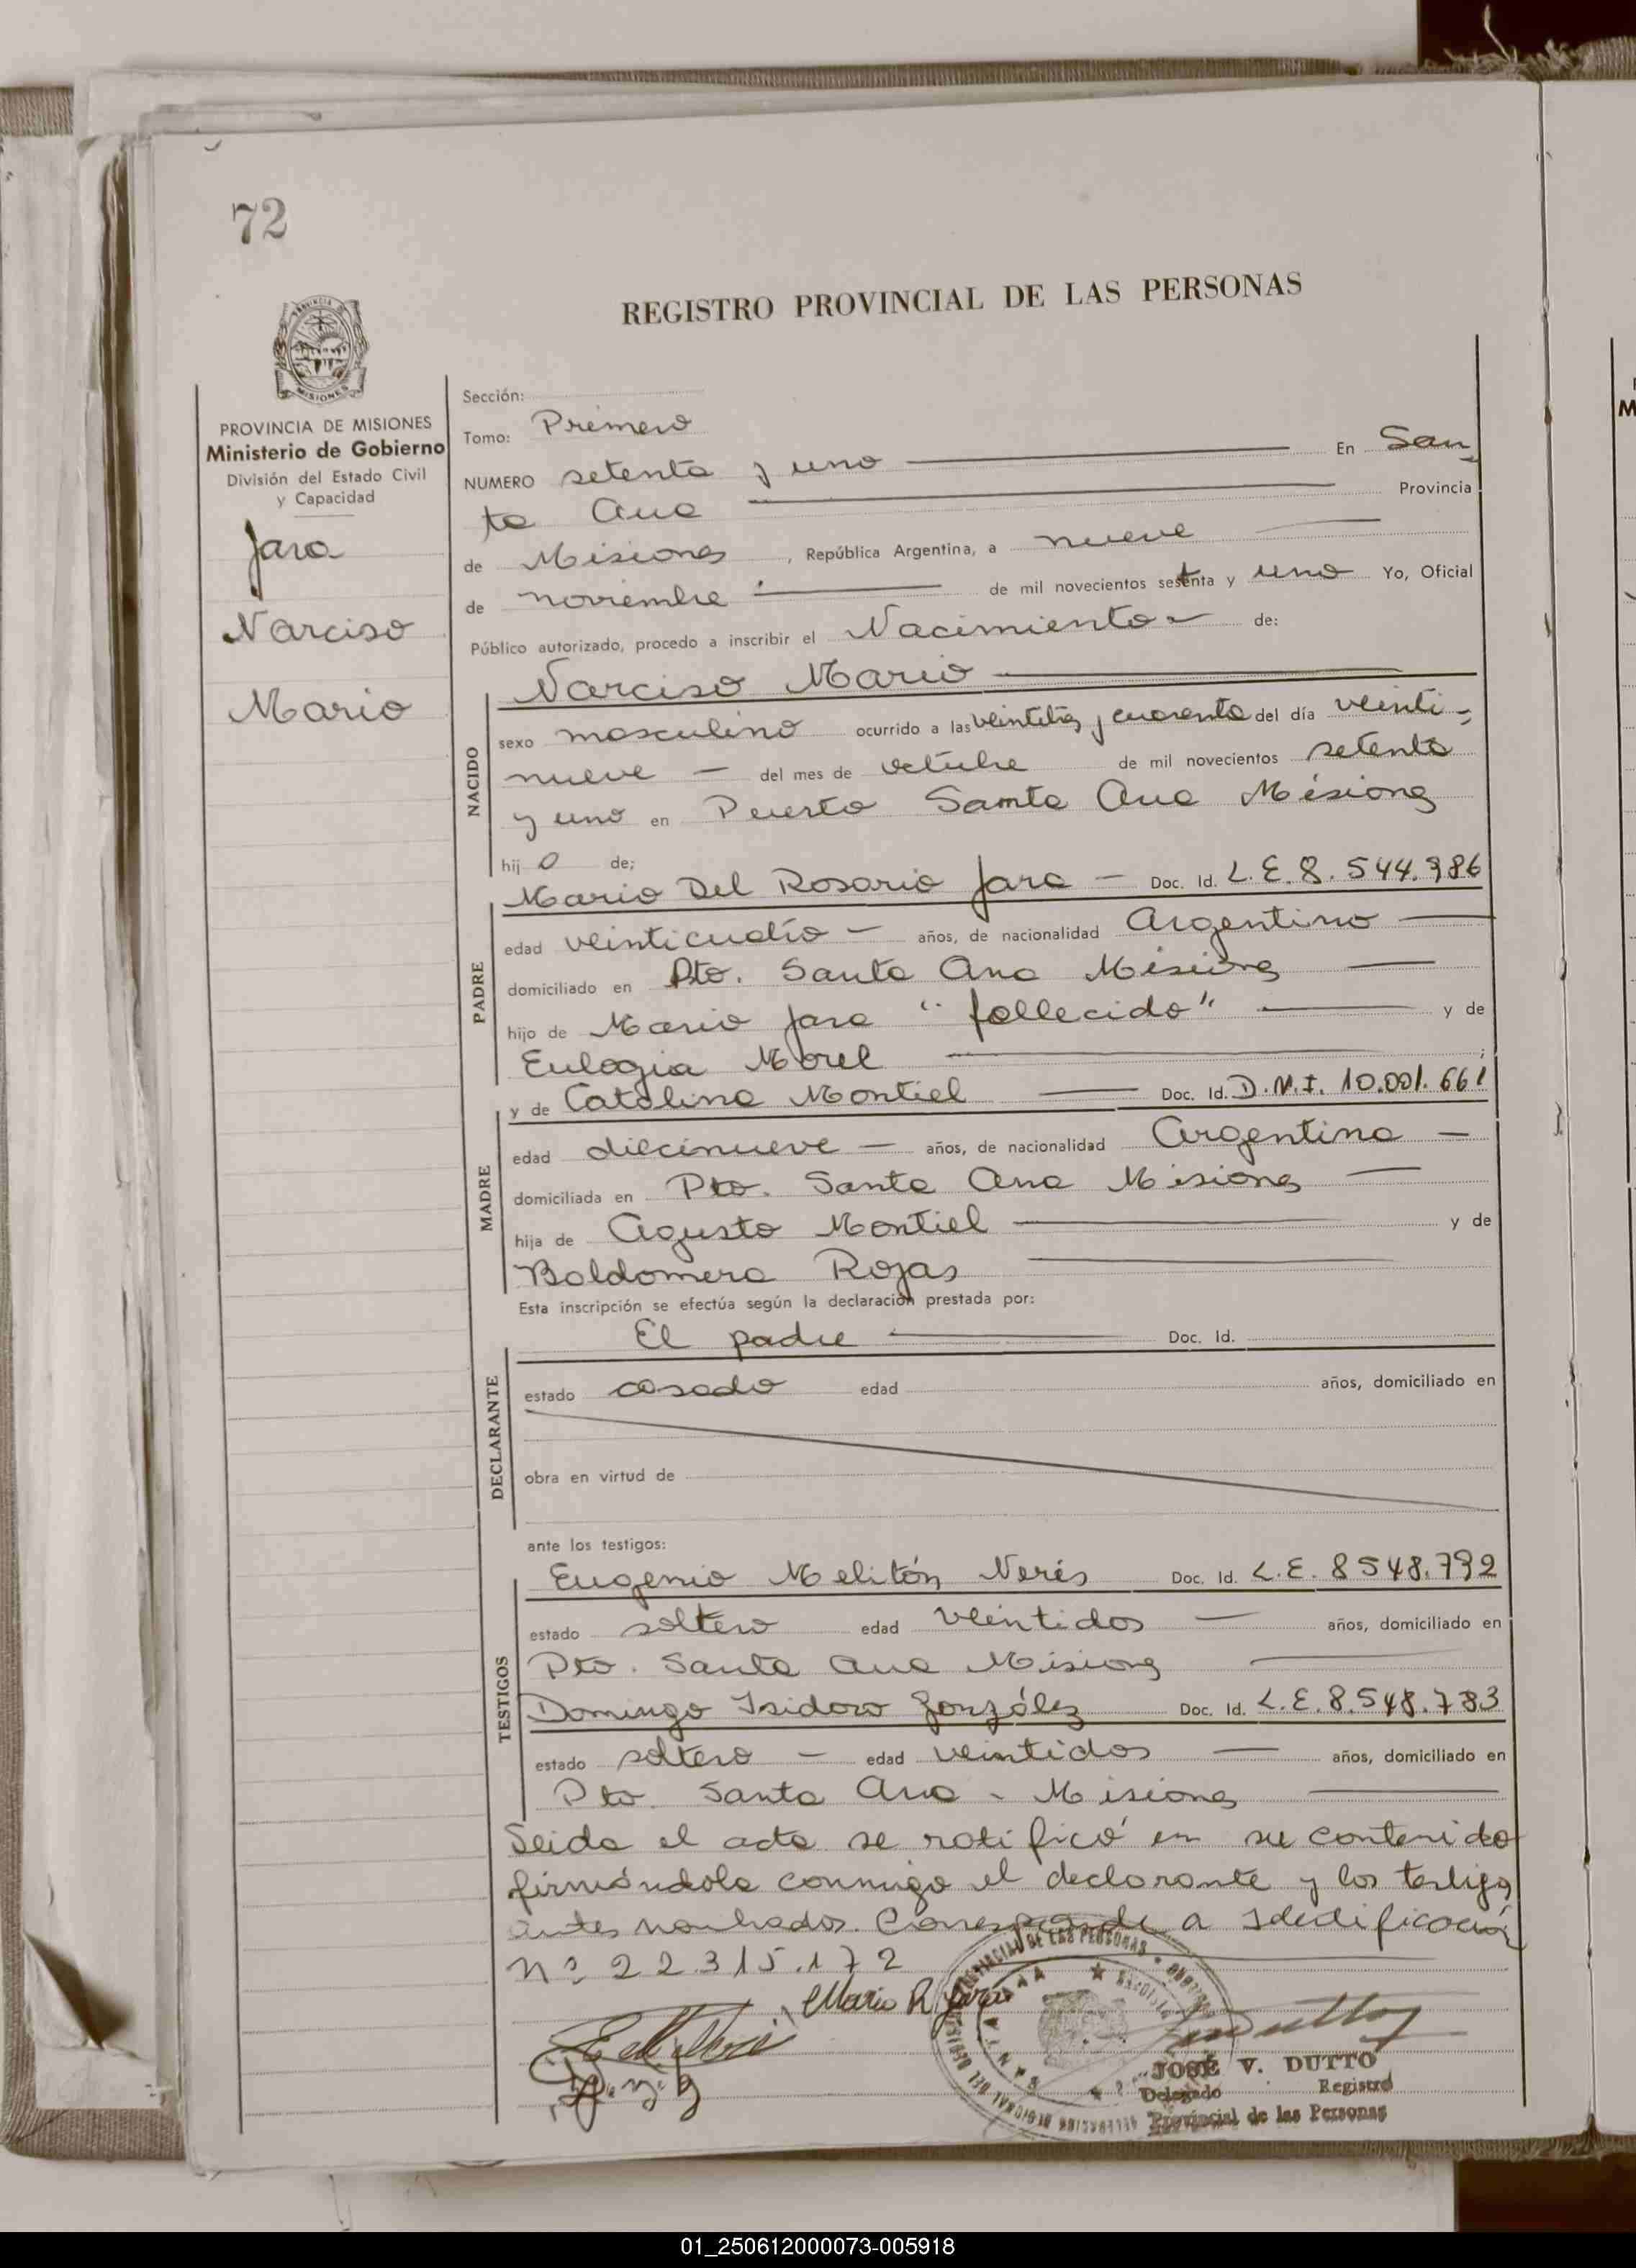 72
REGISTRO PROVINCIAL DE LAS PERSONAS
PROVINCIA DE MISIONES
Ministerio de Gobierno
División del Estado Civil
y Capacidad
Jara
Narciso
Mario
Sección:
Tomo: Primero
NUMERO setenta y uno En San
ta Ana Provincia
de Misiones, República Argentina, a nueve
de noviembre de mil novecientos setenta y uno Yo, Oficial
Público autorizado, procedo a inscribir el Nacimiento de:
Narciso Mario
NACIDO
sexo masculino ocurrido a las veintitres y cuarenta del día veinti-
nueve - del mes de octubre de mil novecientos setenta
y uno en Puerto Santa Ana Misiones
hij o de;
Mario Del Rosario Jara - Doc. Id. L.E. 8.544.986
PADRE
edad veinticuatro - años, de nacionalidad Argentino
domiciliado en Pto. Santa Ana Misiones
hijo de Mario Jara "fallecido" y de
Eulogia Morel ;
y de Catalina Montiel Doc. Id. D.N.I. 10.001.661
MADRE
edad diecinueve - años, de nacionalidad Argentina -
domiciliada en Pto. Santa Ana Misiones
hija de Agusto Montiel y de
Baldomera Rojas
Esta inscripción se efectúa según la declaración prestada por:
El padre Doc. Id.
DECLARANTE
estado casado edad años, domiciliado en
obra en virtud de
ante los testigos:
Eugenio Melitón Neris Doc. Id. L.E. 8548.792
TESTIGOS
estado soltero edad veintidos - años, domiciliado en
Pto. Santa Ana Misiones
Domingo Isidoro González Doc. Id. L.E. 8.548.783
estado soltero - edad veintidos - años, domiciliado en
Pto. Santa Ana - Misiones
Leida el acta se ratificó en su contenido
firmándola conmigo el declarante y los testigos
antes nombrados. Corresponde a Identificación
Nº 22.315.172
Mario R. Jara
JOSÉ V. DUTTO
Delegado Registro
Provincial de las Personas
01_250612000073-005918